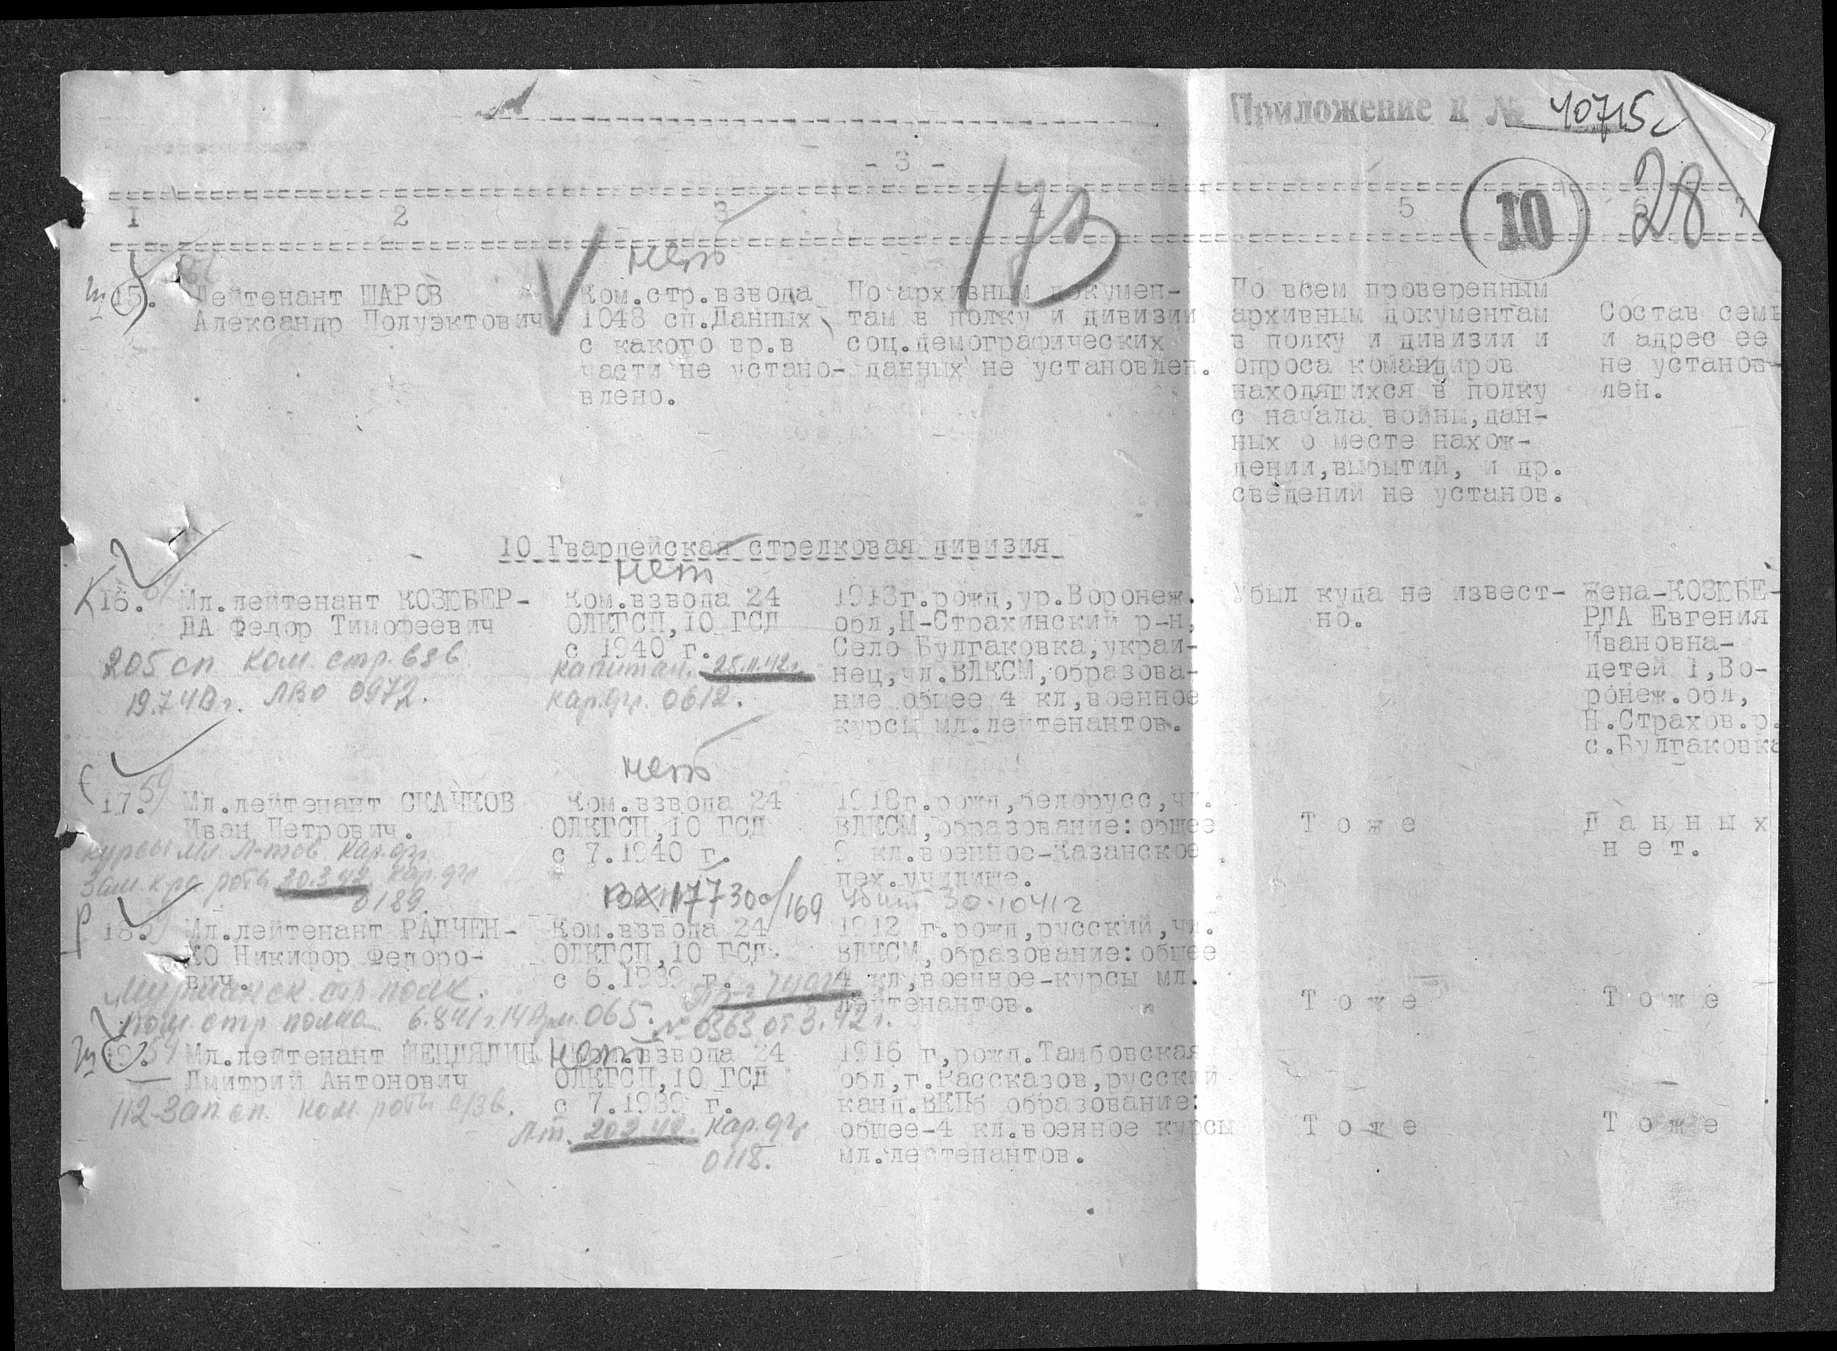 Приложение к № 10715с
- 3 -
1 2 3 4 5 6 7
10
28
173
нет
15. Лейтенант ШАРОВ
Александр Полуэктович
Ком.стр.взвода
1048 сп.Данных
с какого вр.в
части не устано-
влено.
По архивным докумен-
там в полку и дивизии
соц.демографических
данных не установлен.
По всем проверенным
архивным документам
в полку и дивизии и
опроса командиров
находящихся в полку
с начала войны,дан-
ных о месте нахож-
дении,выбытий, и др.
сведений не установ.
Состав семь
и адрес ее
не установ-
лен.
10 Гвардейская стрелковая дивизия
нет
16. Мл.лейтенант КОЗЮБЕР-
ДА Федор Тимофеевич
205 сп ком. стр.
19.7.42г. ЛВО 0972.
Ком.взвода 24
ОЛКГСП,10 ГСД
с 1940 г.
капитан. 25.11.42г.
кар.фр. 0612.
1918г.рожд,ур.Воронеж.
обл,Н-Страхинский р-н,
Село Булгаковка,украи-
нец,чл.ВЛКСМ,образова-
ние общее 4 кл,военное
курсы мл.лейтенантов.
Убыл куда не извест-
но.
Жена-КОЗЮБЕ-
РДА Евгения
Ивановна-
детей 1,Во-
ронеж.обл,
Н.Страхов.р.
с.Булгаковка
нет
17. Мл.лейтенант СКАЧКОВ
Иван Петрович.
курсы мл. л-тов кар.фр.
Зам. к-ра роты 20.3.42 кар.фр
0189
Ком.взвода 24
ОЛКГСП,10 ГСД
с 7.1940 г.
1918г.рожд,белорусс,чл.
ВЛКСМ,образование:общее
9 кл.военное-Казанское
пех.училище.
Т о ж е
Д а н н ы х
н е т.
ВХ 177300/169
Убит 30.10.41г
18. Мл.лейтенант РАДЧЕН-
КО Никифор Федоро-
вич.
Мурманск. стр полк.
пом. стр полка 6.8.41г. 14 Арм. 065.
Ком.взвода 24
ОЛКГСП,10 ГСД
с 6.1939 г.
№ 0363 от 3.42г.
1912 г.рожд,русский,чл.
ВЛКСМ,образование:общее
4 кл,военное-курсы мл.
лейтенантов.
Т о ж е
Т о ж е
нет
19. Мл.лейтенант ШЕНДЯПИН
Дмитрий Антонович
112-Зап сп. ком роты
Ком.взвода 24
ОЛКГСП,10 ГСД
с 7.1939 г.
Л-т. 20.2.42. кар.фр
0118.
1916 г,рожд.Тамбовская
обл,г.Рассказов,русский
канд.ВКПб образование:
общее-4 кл.военное курсы
мл.лейтенантов.
Т о ж е
Т о ж е